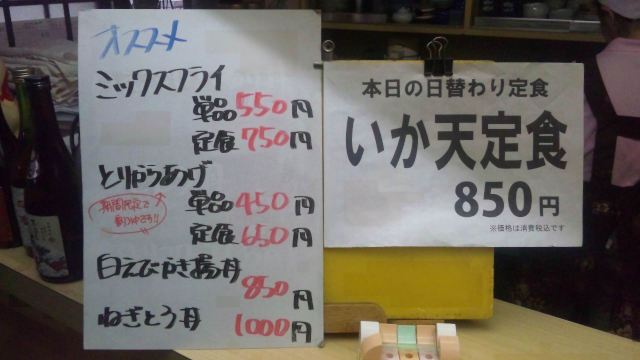 オススメ
ミックスフライ
単品550円
定食750円
とりからあげ
単品450円
定食650円
白えびかき揚丼
850円
ねぎとろ丼
1000円
本日の日替わり定食
いか天定食
850円
※価格は消費税込です